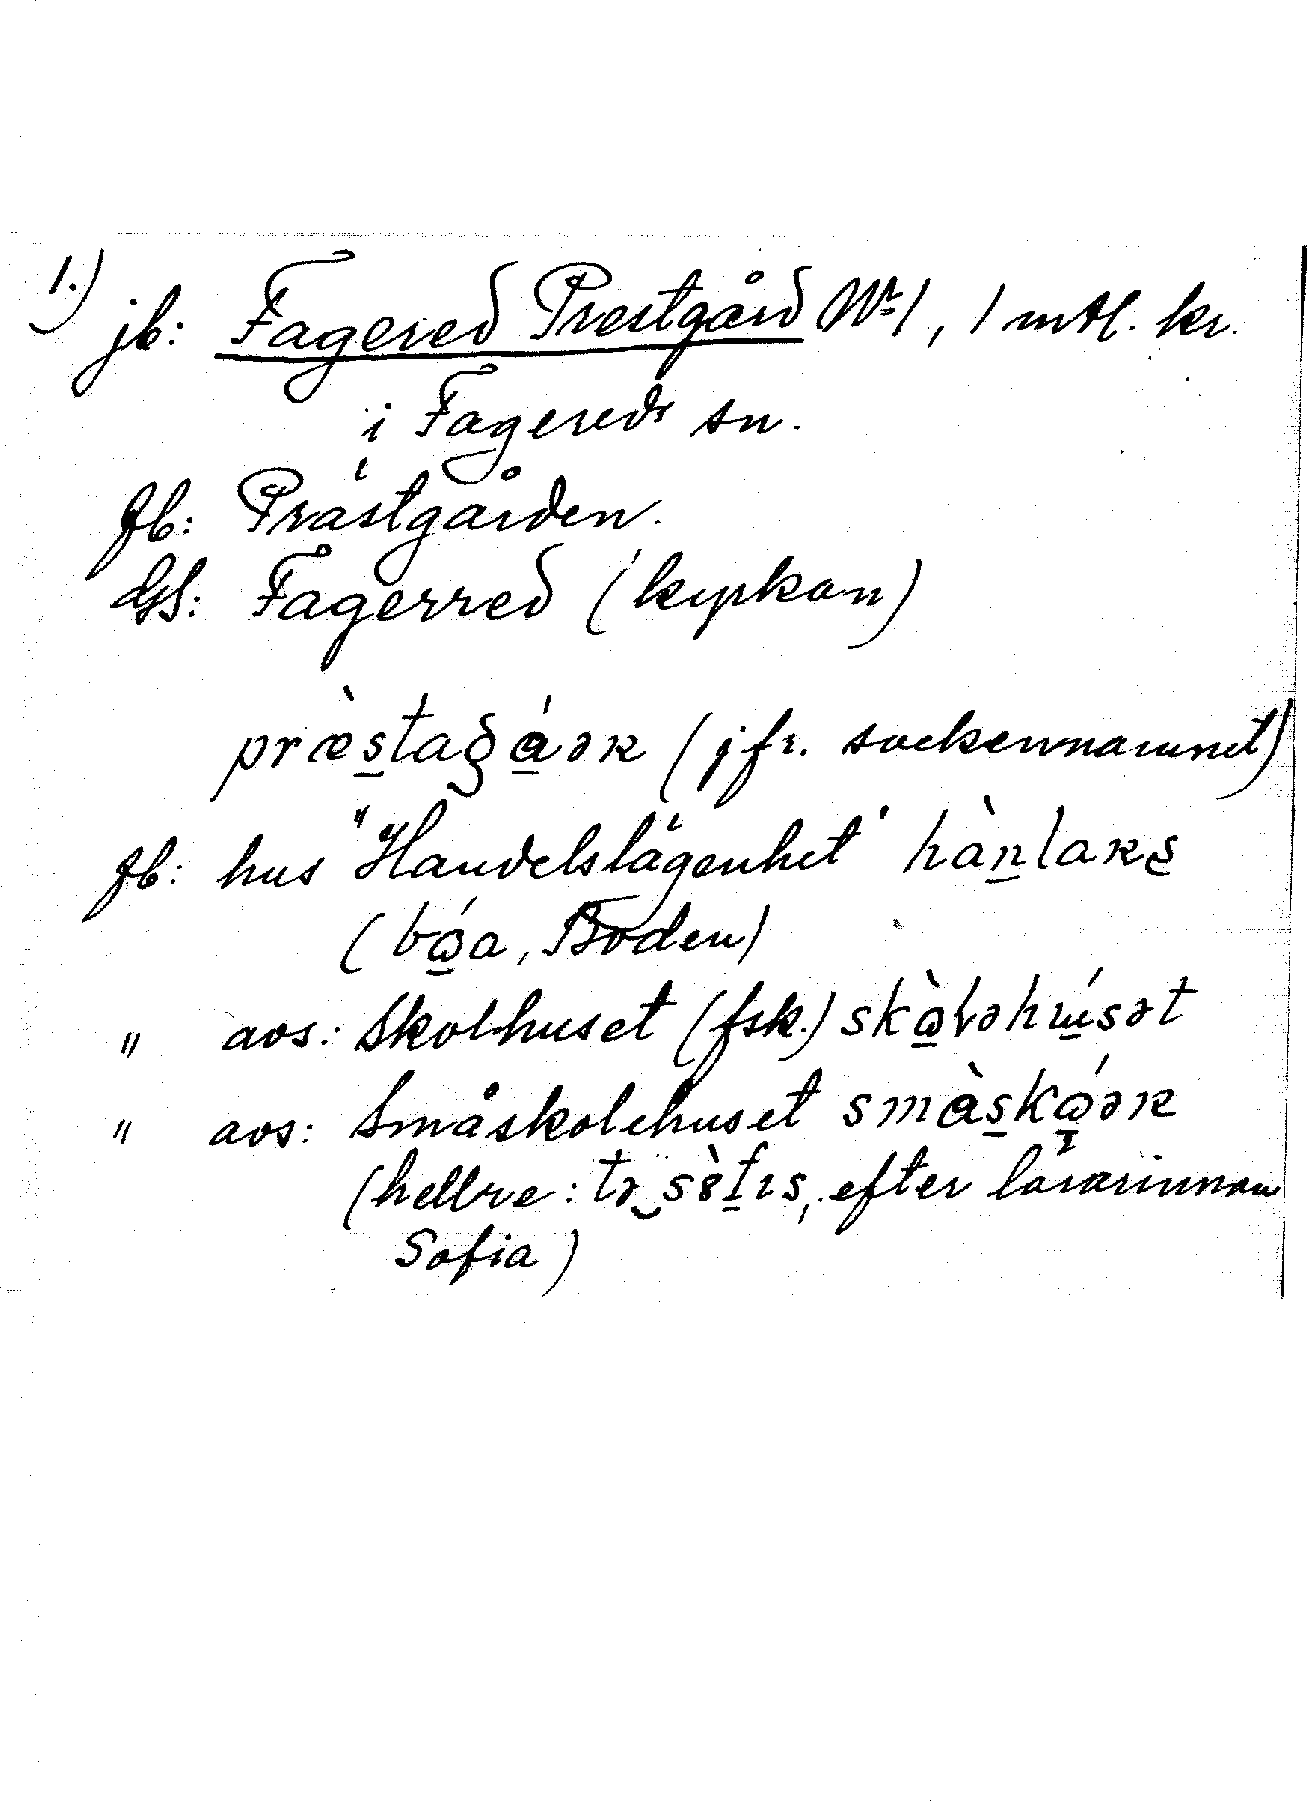 1.) jb: Fagered Prestgård Nr 1, 1 mtl. kr.
i Fagereds sn.
fb: Prästgården.
GS: Fagerred (kyrkan)
præ̀s̲taɡá̲əʀ (jfr. sockennamnet)
fb: hus "Handelslägenhet" hàn̲laʀs
(bó̲a, Boden)
" aos: Skolhuset (fsk.) skò̲ləhɯ̲́sət
" aos: Småskolehuset smàs̲kó̲əʀ
(hellre: tə‿sèf̲ɪs, efter lärarinnan
Sofia)